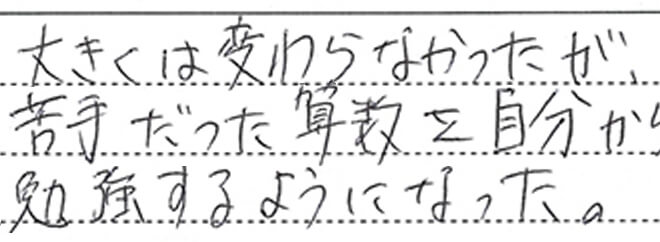 大きくは変わらなかったが、
苦手だった算数を自分から
勉強するようになった。